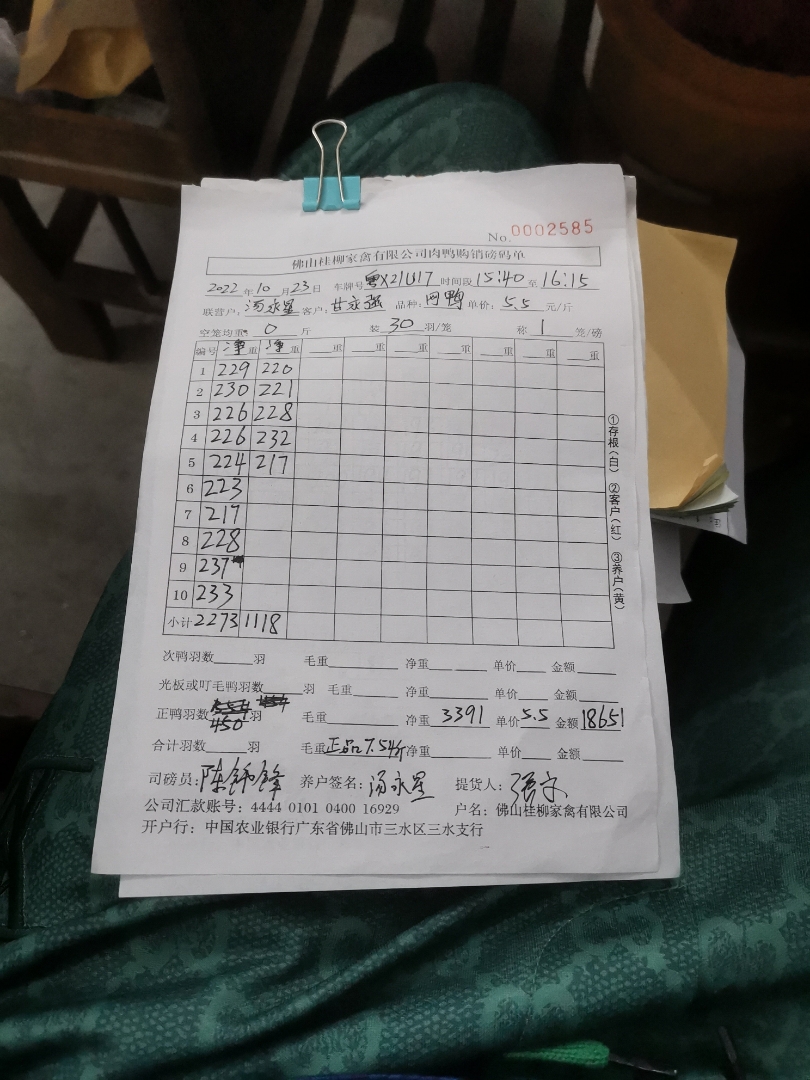 No. 0002585
佛山桂柳家禽有限公司肉鸭购销磅码单
2022年10月23日 车牌号粤X21U17时间段15:40至16:15
联营户:汤永星 客户:甘永强 品种: 单价:5.5元/斤
空笼均重:0斤 装30羽/笼 称1笼/磅
编号 净重 净重 重 重 重 重 重 重 重
1 229 220
2 230 221
3 226 228
4 226 232
5 224 217
6 223
7 217
8 228
9 237
10 233
小计 2273 1118
次鸭羽数 羽 毛重 净重 单价 金额
光板或叮毛鸭羽数 羽 毛重 净重 单价 金额
正鸭羽数450羽 毛重 净重3391 单价5.5 金额18651
合计羽数 羽 毛重正品7.54斤净重 单价 金额
司磅员:陈 锋 养户签名:汤永星 提货人:张
公司汇款账号:4444 0101 0400 16929 户名:佛山桂柳家禽有限公司
开户行:中国农业银行广东省佛山市三水区三水支行
①存根(白) ②客户(红) ③养户(黄)